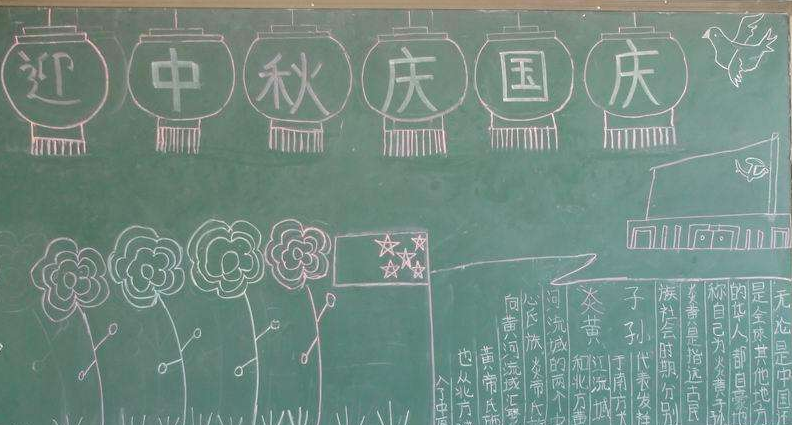 迎中秋庆国庆
炎黄子孙
无论是中国还
是全球其他地方
的华人都自豪地
称自己为炎黄子孙
炎黄是指远古民
族社会时期分别
代表发
于南方
江流域
和北方黄
河流域的两个
心氏族炎帝氏
向黄河流域汇聚
黄帝氏
也从北方